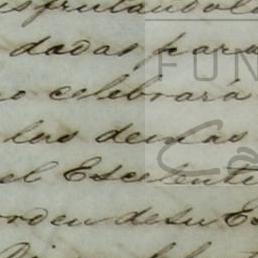 disfrutandol
dadas para
o celebrará
las demas
el Escelenti
orden de su Es